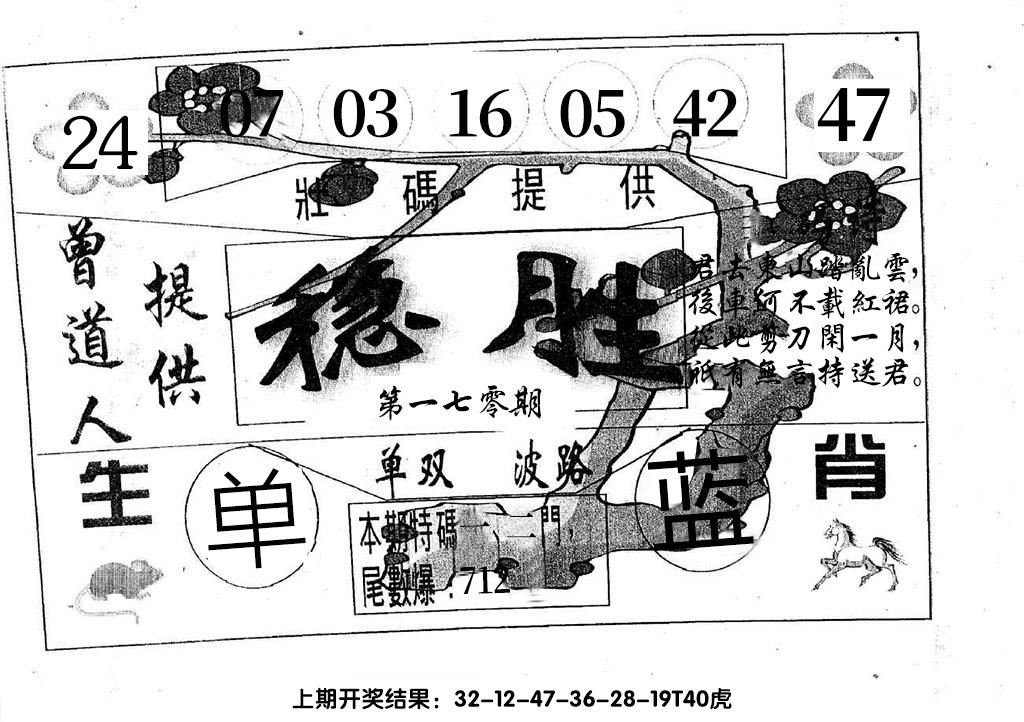 24 07 03 16 05 42 47
壯碼提供
特
曾道人
提供
稳胜
第一七零期
君去東山踏亂雲,
後車何不載紅裙。
從此剪刀閑一月,
祇有無言持送君。
单双 波路
生 单 蓝 肖
本期特碼一、二門,
尾數爆:712
上期开奖结果:32-12-47-36-28-19T40虎